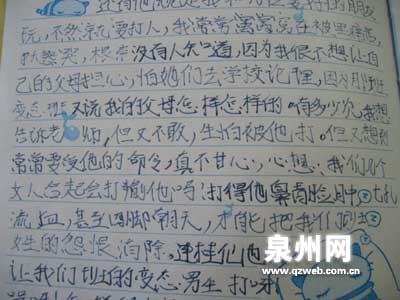 还有他说是我和
的朋友
玩，不然亲
要打人，我常常窝窝在被里痛
哭，根本没有人知道，因为我很不想让自
己的父母担心，怕她们去学校论理，因为那班
变态班又说我的父母怎样怎样的。有多少次，我想
告诉老师，但又不敢，生怕被他打。但又想到
常常要受他的命令，真不甘心，心想：我们几个
女人合起会打输他吗？打得他鼻青脸肿，
流血，甚至四脚朝天，才能把我们
姓的怨恨消除。连挂
他
让我们班的变态男生打
泉州网
www.qzweb.com.cn